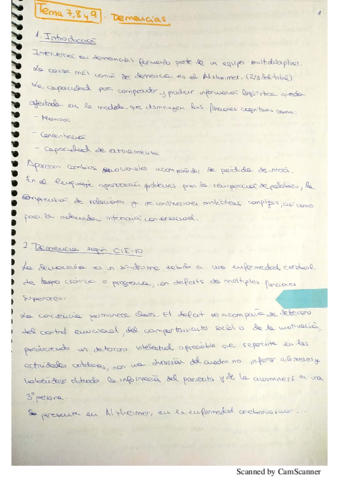 Tema 7, 8 y 9. Demencias
1
1. Introducción
Intervenir en demencias formando parte de un equipo multidisciplinar.
La causa más común de demencia es el Alzheimer. (2/3 del total)
La capacidad por comprender y producir información lingüística queda
afectada en la medida que disminuyen las funciones cognitivas como:
- Memoria
- Concentración
- Capacidad de
Aparecen cambios emocionales acompañados de pérdidas de
En el lenguaje aparecerán problemas para la recuperación de palabras, la
comprensión de relaciones y de construcciones sintácticas complejas, así como
para la adecuada interacción conversacional.
2. Demencia según CIE-10
La demencia es un síndrome debido a una enfermedad cerebral
de tipo crónico o progresiva, con déficits de múltiples funciones
superiores.
La conciencia permanece clara. El déficit se acompaña de deterioro
del control emocional, del comportamiento social o de la motivación,
produciendo un deterioro intelectual apreciable que repercute en las
actividades cotidianas, con una duración del cuadro no inferior a 6 meses y
habiéndose obtenido la información del paciente y de la anamnesis a una
3ª persona.
Se presenta en Alzheimer, en la enfermedad cerebrovascular...
Scanned by CamScanner